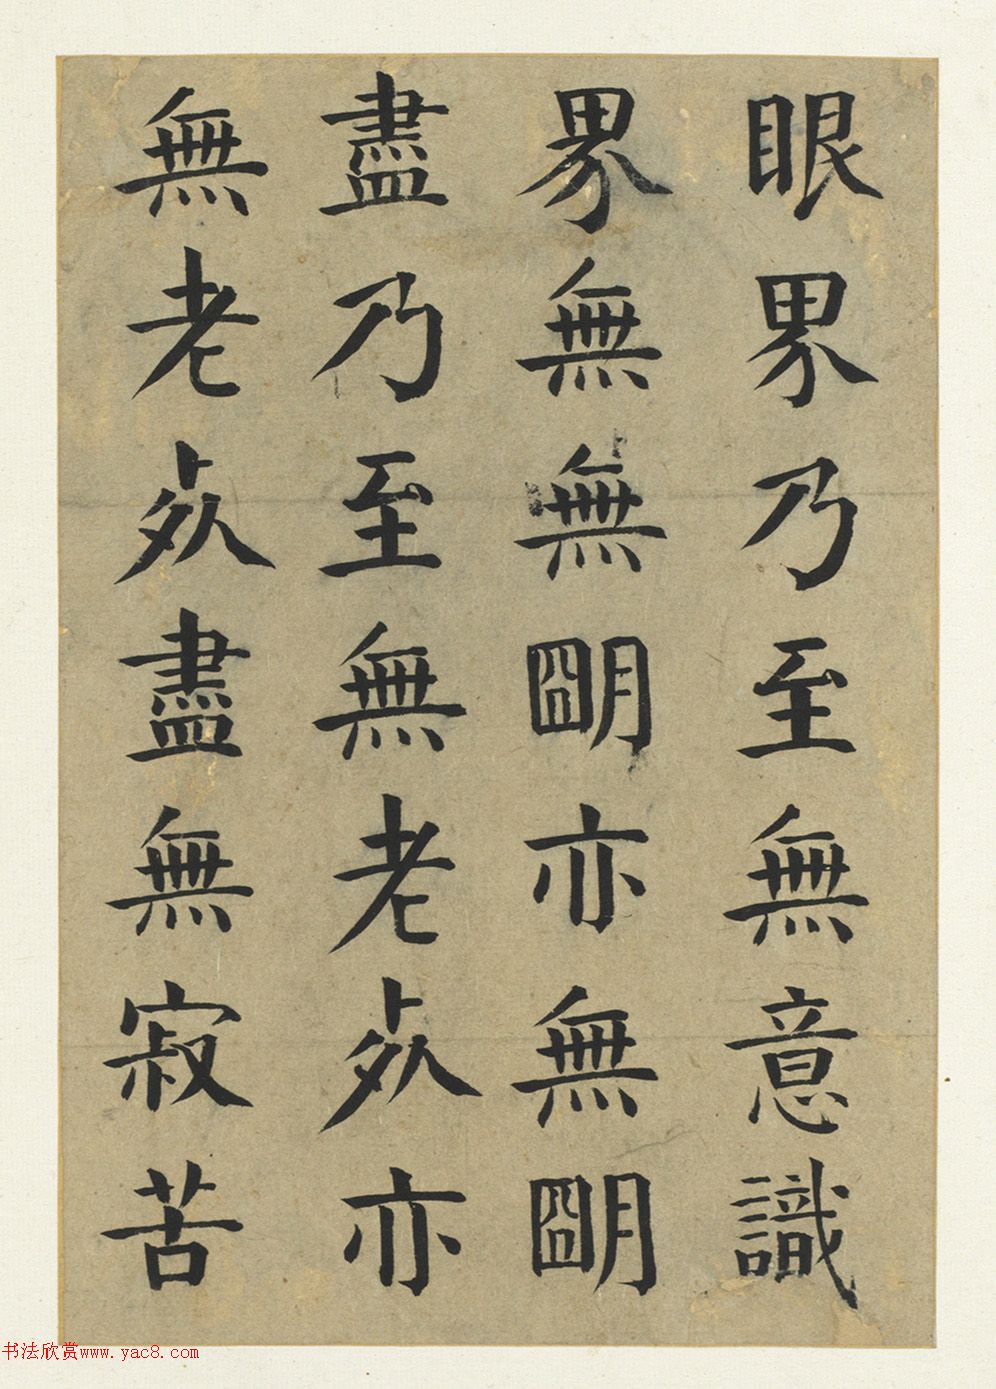 眼界乃至無意識
界無無朙亦無朙
盡乃至無老死亦
無老死盡無寂苦
书法欣赏www.yac8.com